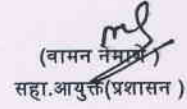 (वामन नेमाने )
सहा.आयुक्त(प्रशासन )